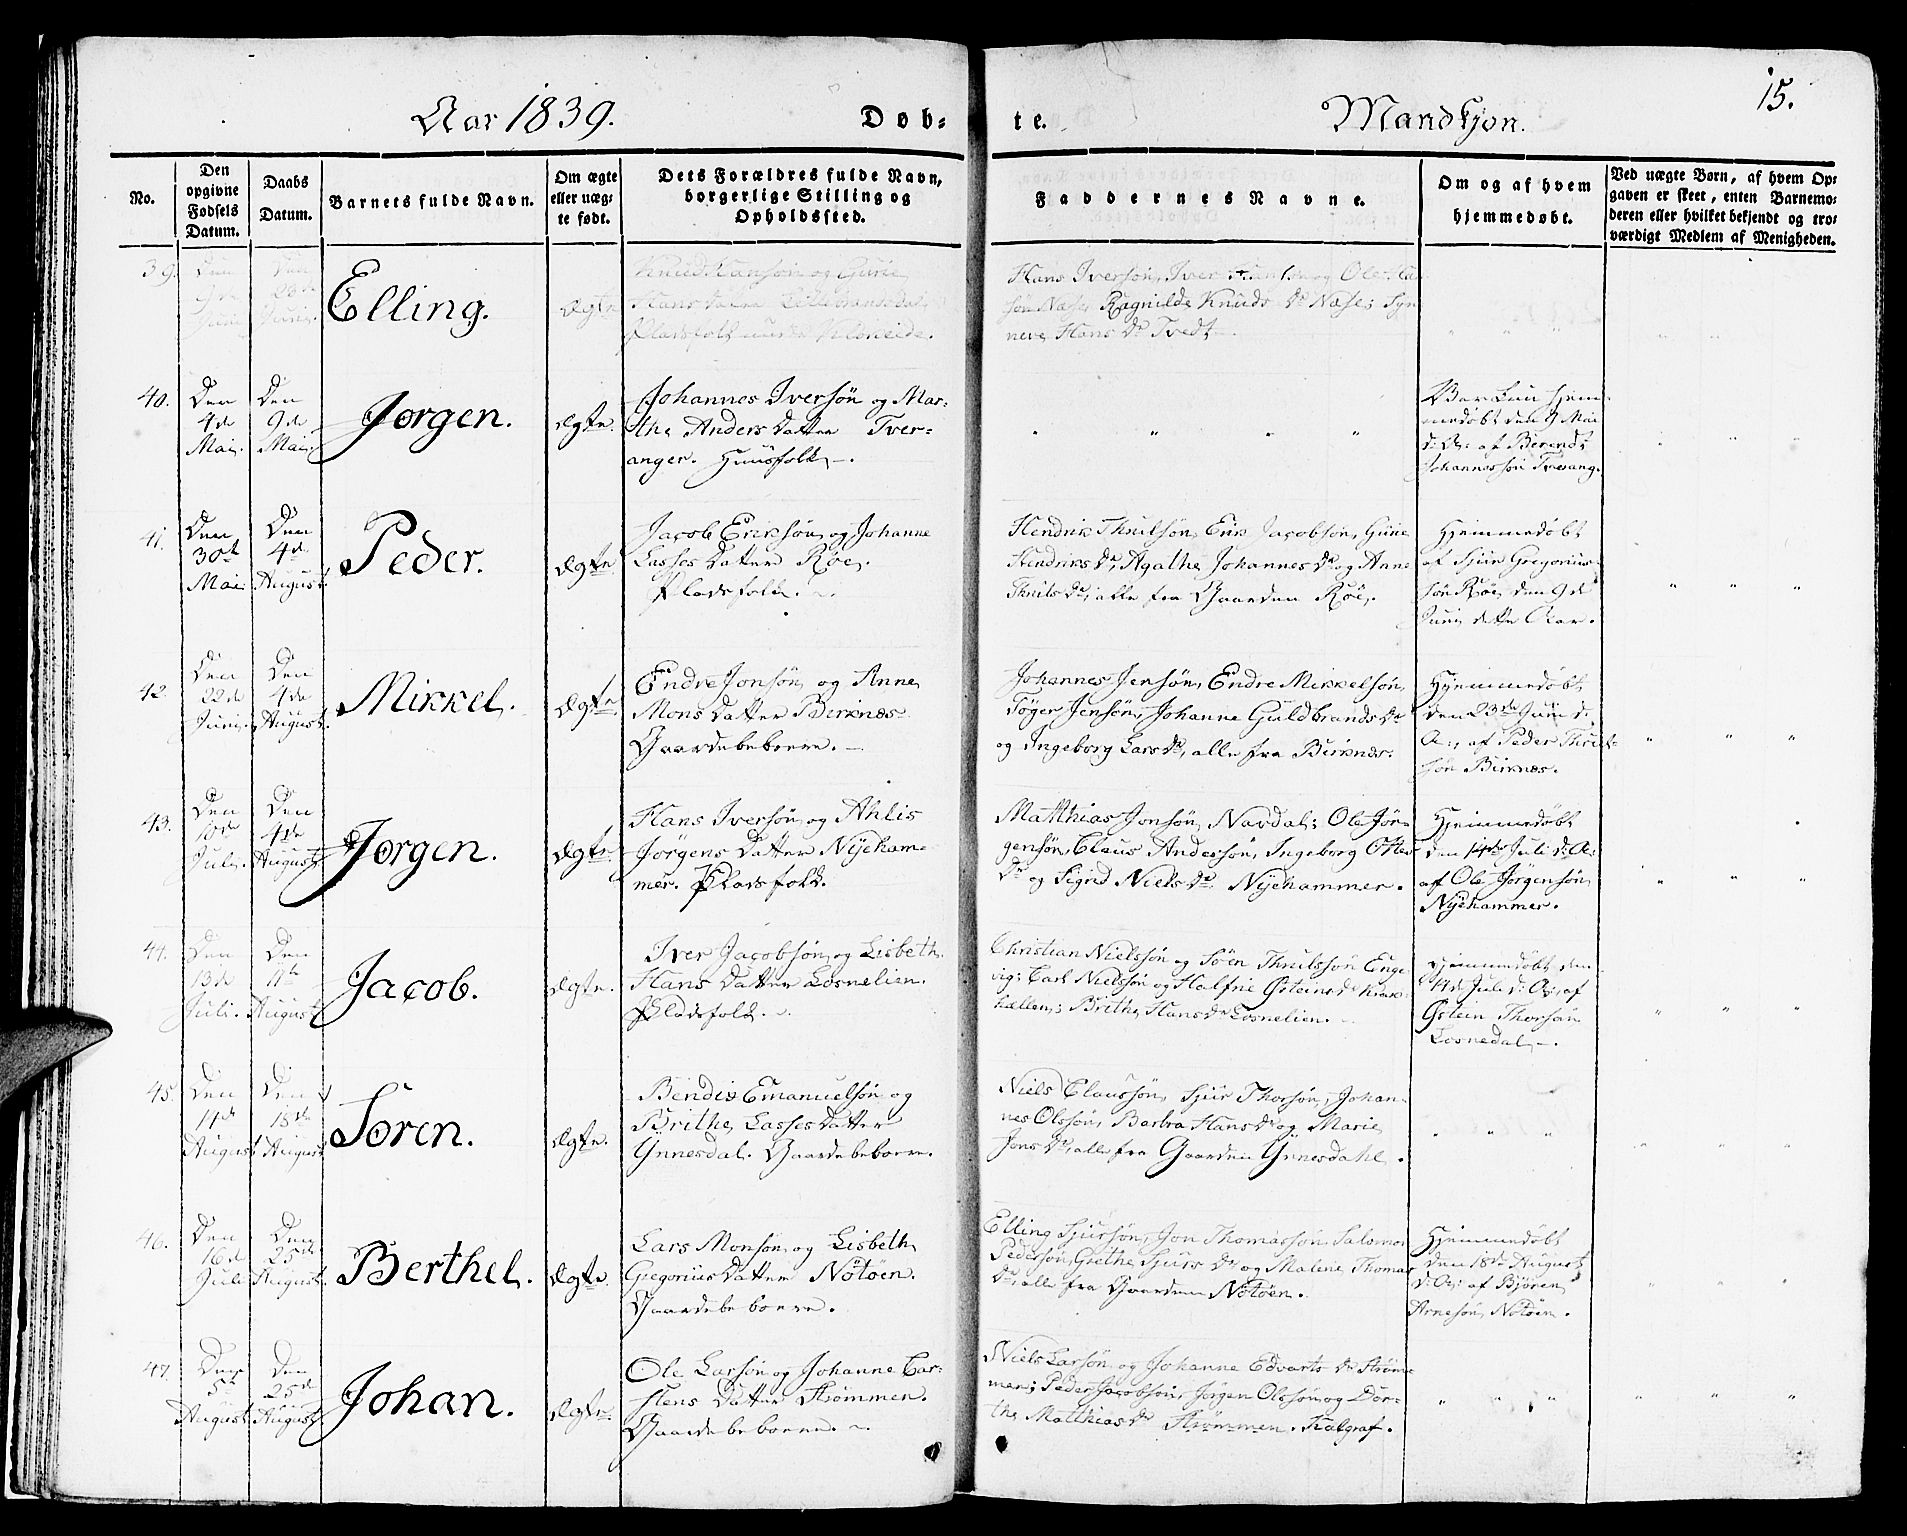 Aar 1839.
Døb-
te.
Mandkjøn.
15.
No.
Den opgivne Fødsels Datum.
Daabs Datum.
Barnets fulde Navn.
Om ægte eller uægte født.
Dets Forældres fulde Navn, borgerlige Stilling og Opholdssted.
Faddernes Navne.
Om og af hvem hjemmedøbt.
Ved uægte Børn, af hvem Opgaven er skeet, enten Barnemoderen eller hvilket bekjendt og troværdigt Medlem af Menigheden.
39.
Den
Juni
Den
Juni.
Elling.
Ægte
Knud Hansøn og Guri
Hans Datter
Pladsfolk under
Hans Iversøn, Iver
Ragnilde Knuds Dr Næse; Syn-
neve Hans Dr Tvedt
40.
Den
4de
Mai.
Den
9de
Mai.
Jørgen.
Ægte.
Johannes Iversøn og Mar-
the Anders Datter Tver-
anger. Huusfolk.
Var kun hjem-
medøbt den 9 Mai
d: A: af Berendt
Johannessøn Tverang.
41.
Den
30te
Mai
Den
4de
August.
Peder.
Ægte
Jacob Eriksøn og Johanne
Lasses Datter Røe.
Pladsfolk.
Hendrik Thrulsøn, Erik Jacobsøn, Gurie
Hendriks Dr, Agathe Johannes Dr og Anne
Thruls Dr, alle fra Gaarden Røe.
Hjemmedøbt
af Sjur Gregorius-
søn Røe den 9de
Juni dette Aar.
42.
Den
22de
Juni.
Den
4de
August.
Mikkel.
Ægte
Endre Jonsøn og Anne
Mons Datter Birknæs
Gaardebeboere.
Johannes Jensøn, Endre Mikkelsøn,
Tøger Jensøn, Johanne Guldbrands Dr
og Ingeborg Lars Dr, alle fra Birknæs.
Hjemmedøbt
den 23de Juni d:
A:, af Peder Thrul-
søn Birknæs.
43.
Den
10de
Juli.
Den
4de
August
Jørgen.
Ægte.
Hans Iversøn og Ahlis
Jørgens Datter Nyeham-
mer. Pladsfolk.
Matthias Jonsøn, Navdal; Ole Jør-
gensøn, Claus Andersøn, Ingeborg Ottes
Dr og Sigrid Niels Dr Nyehammer.
Hjemmedøbt
den 14de Juli d: A:
af Ole Jørgensøn
Nyehammer.
44.
Den
13de
Juli.
Den
11te
August
Jacob.
Ægte.
Iver Jacobsøn og Lisbeth
Hans Datter Losnelien.
Pladsfolk.
Christian Nielssøn og Søen Thrulssøn Enge-
vig; Carl Nielssøn og Halfrie Østeins Dr Krak-
hællen; Brithe Hans Dr Losnelien.
Hjemmedøbt den
14de Juli d: A:, af
Østein Thorsøn
Losnedal.
45.
Den
11te
August
Den
18de
August
Søren.
Ægte.
Bendix Emanuelsøn og
Brithe Lasses Datter
Ynnesdal. Gaardebeboere.
Niels Claussøn, Sjur Thorsøn, Johan-
nes Olssøn, Barbra Hans Dr og Marie
Jons Dr, alle fra Gaarden Ynnesdahl.
46.
Den
16de
Juli
Den
25de
August.
Berthel.
Ægte.
Lars Monsøn og Lisbeth
Gregorius Datter Nøtøen.
Gaardebeboere.
Elling Sjursøn, Jon Thomassøn, Salomon
Pedersøn, Grethe Sjurs Dr og Malene Thomas
Dr, alle fra Gaarden Nøtøen.
Hjemmedøbt
den 18de August
d: A: af Bjøren
Arnesøn, Nøtøen.
47.
Den
5te
August
Den
25de
August
Johan.
Ægte.
Ole Larsøn og Johanne Car-
stens Datter Strømmen.
Gaardebeboere.
Niels Larsøn og Johanne Edvarts Dr Strøm-
men; Peder Jacobsøn, Jørgen Olssøn og Dor-
the Matthias Dr Strømmen. Kalgraf.